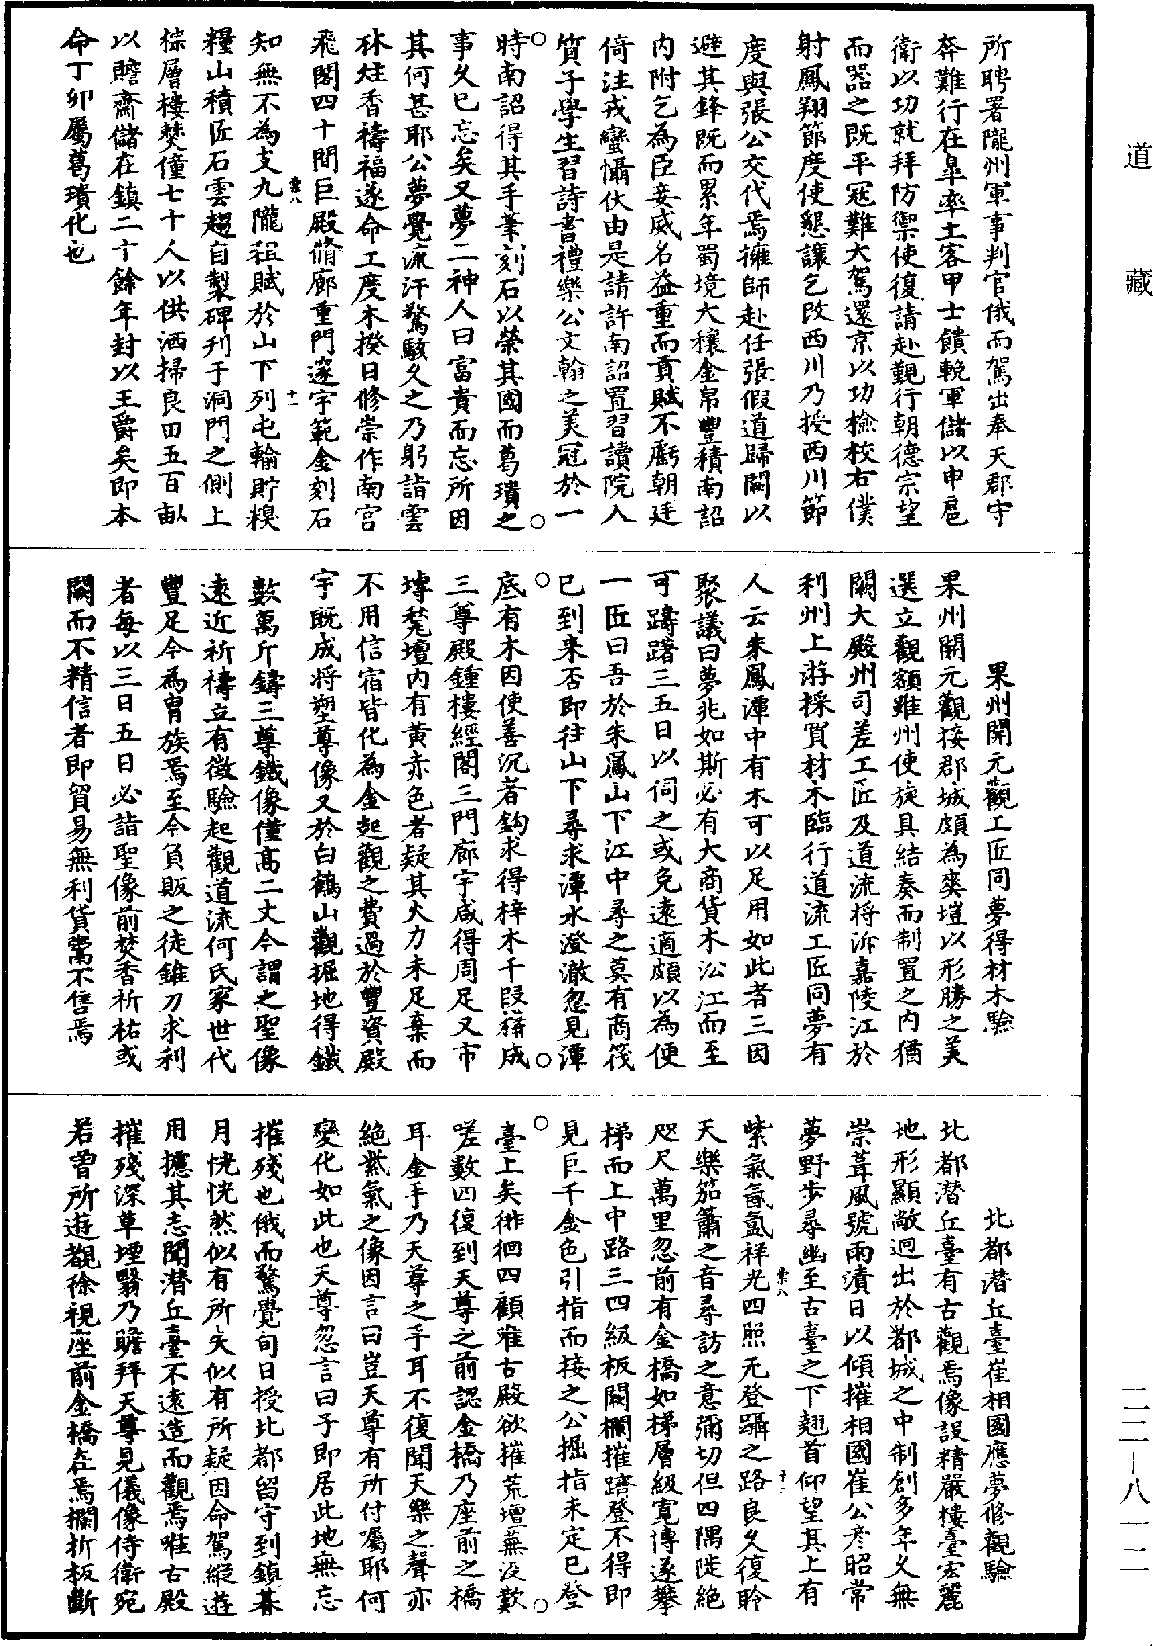 道藏
所聘署隴州軍事判官俄而駕出奉天郡守
奔難行在皐率土客甲士饋輓軍儲以申扈
衛以功就拜防禦使復請赴覲行朝德宗望
而器之既平冦難大駕還京以功檢校右僕
射鳳翔節度使懇讓乞改西川乃授西川節
度與張公交代焉擁師赴任張假道歸闕以
避其鋒既而累年蜀境大穰金帛豐積南詔
內附乞為臣妾威名益重而貢賦不虧朝廷
倚注戎蠻懾伏由是請許南詔置習讀院入
質子學生習詩書禮樂公文翰之美冠於一
時南詔得其手筆刻石以榮其國而葛璝之
事久已忘矣又夢二神人曰富貴而忘所因
其何甚耶公夢覺流汗驚駭久之乃躬詣雲
林炷香禱福遂命工度木揆日修崇作南宮
飛閣四十間巨殿脩廊重門邃宇範金刻石
知無不為支九隴租賦於山下列屯輸貯糗
糧山積匠石雲趨自製碑刊于洞門之側上
棕層樓焚僮七十人以供洒掃良田五百畝
以贍齋儲在鎮二十餘年封以王爵矣即本
命丁卯屬葛璝化也
果州開元觀工匠同夢得材木驗
果州開元觀接郡城頗為爽塏以形勝之美
選立觀額雖州使旋具結奏而制置之內猶
闕大殿州司差工匠及道流將泝嘉陵江於
利州上游採買材木臨行道流工匠同夢有
人云朱鳳潭中有木可以足用如此者三因
聚議曰夢兆如斯必有大商貨木沿江而至
可躊躇三五日以伺之或免遠適頗以為便
一匠曰吾於朱鳳山下江中尋之莫有商筏
已到來否即往山下尋求潭水澄澈忽見潭
底有木因使善沉者鈎求得梓木千段構成
三尊殿鍾樓經閣三門廊宇咸得周足又市
塼甃壇內有黃赤色者疑其火力未足棄而
不用信宿皆化為金起觀之費過於豐資殿
宇既成將塑尊像又於白鶴山觀掘地得鐵
數萬斤鑄三尊鐵像僅高二丈今謂之聖像
遠近祈禱立有徵驗起觀道流何氏家世代
豐足今為胄族焉至今負販之徒錐刀求利
者每以三日五日必詣聖像前焚香祈祐或
闕而不精信者即貿易無利貨鬻不售焉
北都潜丘臺崔相國應夢修觀驗
北都潜丘臺有古觀焉像設精嚴樓臺宏麗
地形顯敞迥出於都城之中制創多年久無
崇葺風號雨漬日以傾摧相國崔公彥昭常
夢野步尋幽至古臺之下翹首仰望其上有
紫氣氤氳祥光四照无登躡之路良久復聆
天樂笳簫之音尋訪之意彌切但四隅陡絕
咫尺萬里忽前有金橋如梯層級寬博遂攀
梯而上中路三四級板闕欄摧躋登不得即
見巨千金色引指而接之公掘指未定已登
臺上矣徘徊四顧唯古殿欲摧荒壇蕪沒歎
嗟數四復到天尊之前認金橋乃座前之橋
耳金手乃天尊之手耳不復聞天樂之聲亦
絕紫氣之像因言曰豈天尊有所付囑耶何
變化如此也天尊忽言曰予即居此地無忘
摧殘也俄而驚覺旬日授北都留守到鎮朞
月恍恍然似有所失似有所疑因命駕縱遊
用攄其志聞潜丘臺不遠造而觀焉唯古殿
摧殘深草堙翳乃瞻拜天尊見儀像侍衛宛
若曾所遊觀徐視座前金橋在焉欄折板斷
二二—八一二
棠八
十一
棠八
十二